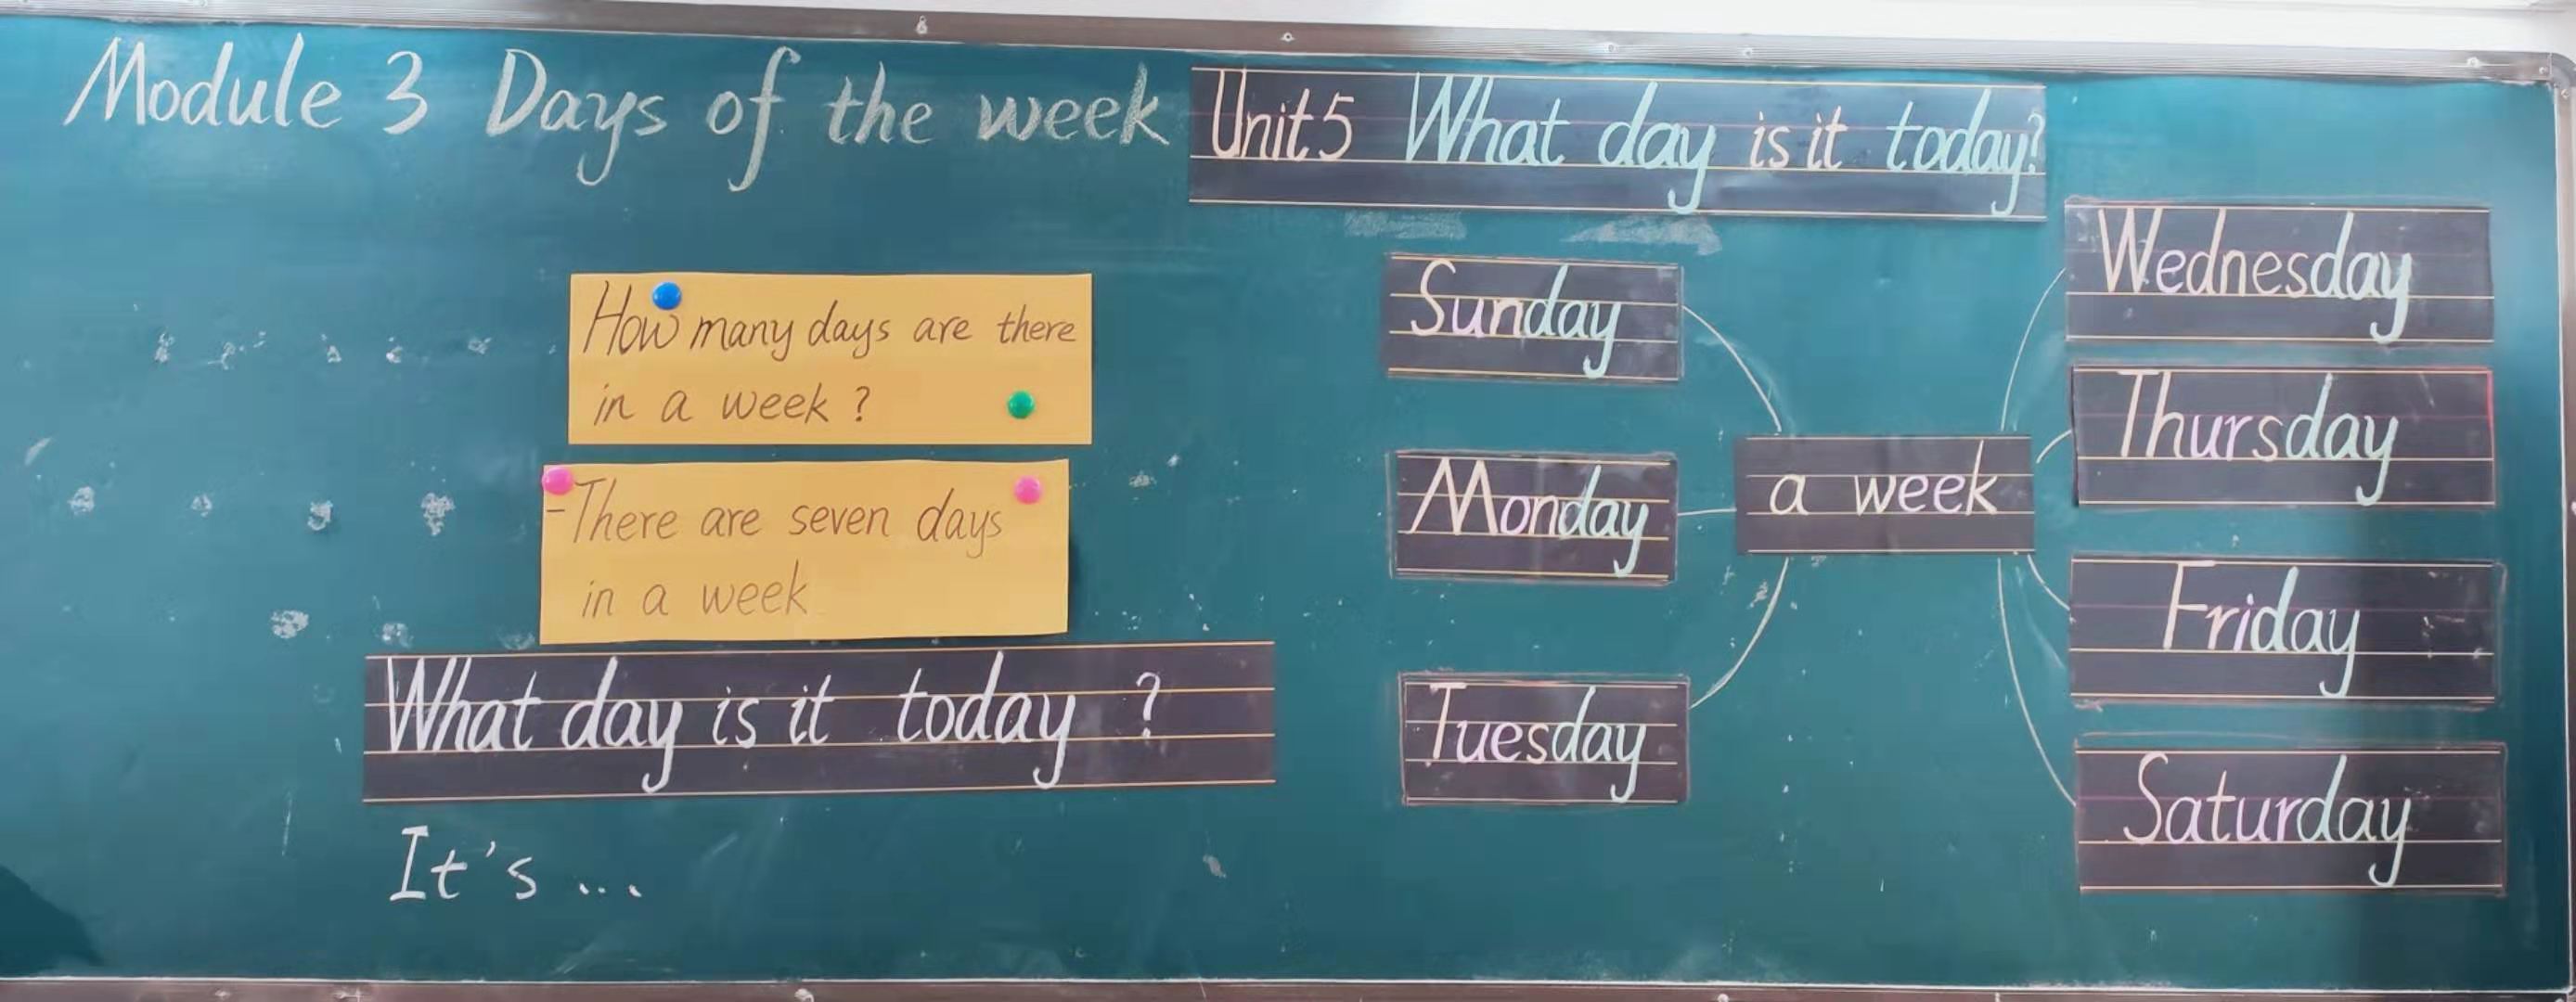 Module 3 Days of the week Unit5 What day is it today?
How many days are there
in a week ?
-There are seven days
in a week
What day is it today ?
It's ...
Sunday
Monday
Tuesday
a week
Wednesday
Thursday
Friday
Saturday